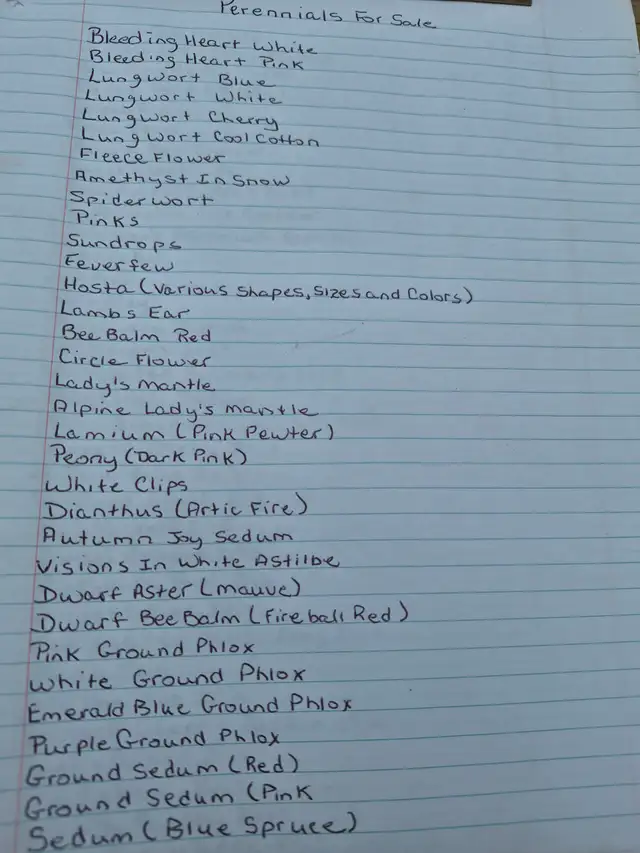 Perennials For Sale
Bleeding Heart White
Bleeding Heart Pink
Lungwort Blue
Lungwort White
Lungwort Cherry
Lungwort Cool Cotton
Fleece Flower
Amethyst In Snow
Spiderwort
Pinks
Sundrops
Feverfew
Hosta (Various Shapes, Sizes and Colors)
Lambs Ear
Bee Balm Red
Circle Flower
Lady's mantle
Alpine Lady's mantle
Lamium (Pink Pewter)
Peony (Dark Pink)
White Clips
Dianthus (Artic Fire)
Autumn Joy Sedum
Visions In White Astilbe
Dwarf Aster (mauve)
Dwarf Bee Balm (Fireball Red)
Pink Ground Phlox
White Ground Phlox
Emerald Blue Ground Phlox
Purple Ground Phlox
Ground Sedum (Red)
Ground Sedum (Pink
Sedum (Blue Spruce)